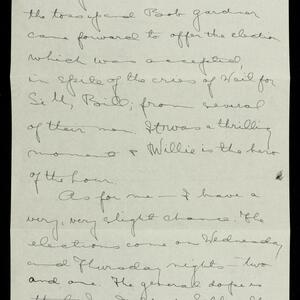 the toss up and Bob Gardner
came forward to offer the election
which was accepted,
in spite of the cries of Wait for
Se M, Bill; from several
of their men. It was a thrilling
moment & Willie is the hero
of the hour.
As for me — I have a
very, very slight chance. The
elections come on Wednesday
and Thursday nights — two
and one. The general dope is